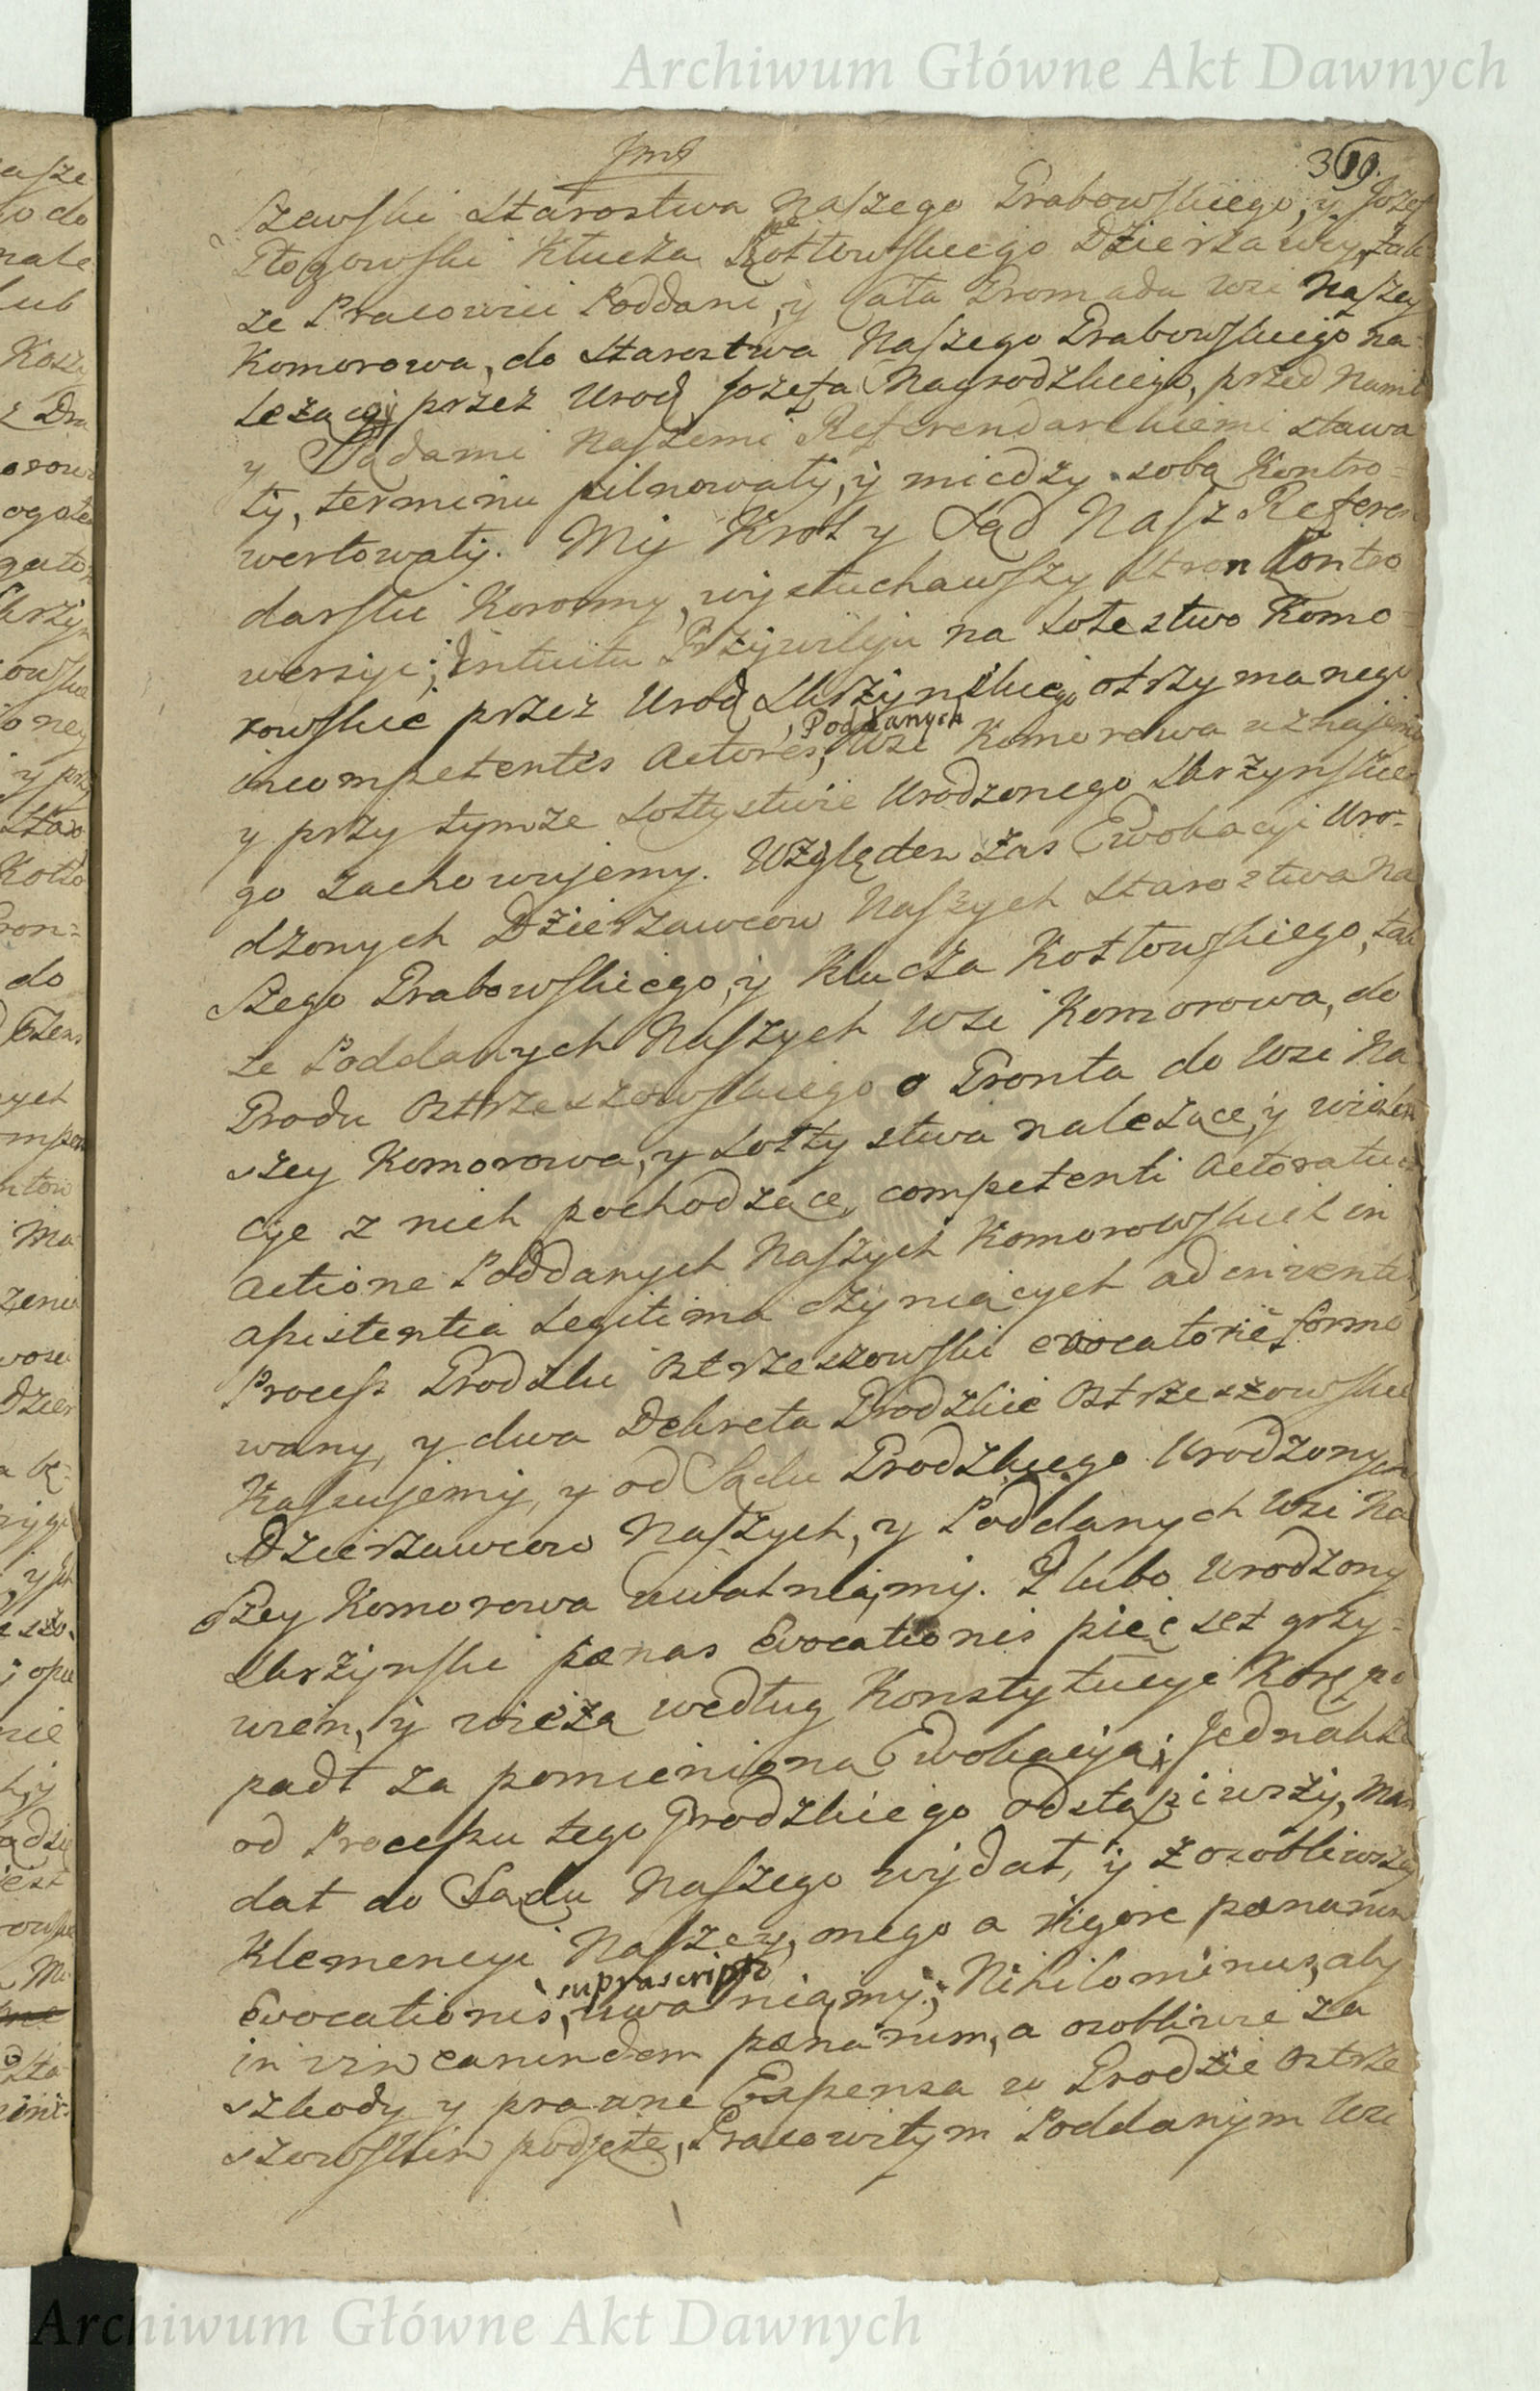 Archiwum Główne Akt Dawnych
Jmć
szewski Starostwa Naszego Grabowskiego, y Jozef
Głogowski Klucza Kotłowskiego Dzierzawcy, tak
ze Pracowici Poddani, y Cała Gromada wsi Naszey
Komorowa, do Starostwa Naszego Grabowskiego na
lezący przez Urod Jozefa Nagrodzkiego, przed Nami
y Sądami Naszemi Referendarskiemi stawa
ły, terminu pilnowały, y miedzy sobą Kontro=
wertowały. My Krol y Sąd Nasz Referen
darski Koronny, wysłuchawszy Stron Kontro
wersyi; Intuitu Przywileju na Sołestwo Komo
rowskie przez Urod Skrzynskiego otrzymanego
, Poddanych
incompetentes Actores, Wsi Komorowa uznajemy
y przy tymze Sołtystwie Urodzonego Skrzynskie
go zachowujemy. Względem zas Ewokacyi Uro-
dzonych Dzierzawcow Naszych Starostwa Na
szego Grabowskiego, y Klucza Kotłowskiego, tak
ze Poddanych Naszych Wsi Komorowa, do
Grodu Ostrzeszowskiego o Gronta do Wsi Na
szey Komorowa, y Sołtystwa nalezące, y
cye z nich pochodzące, competenti Actoratu
Actione Poddanych Naszych Komorowskich in
assistentia legitima czyniących ad
Process Grodzki Ostrzeszowski evocatorie formo
wany, y dwa Dekreta Grodzkie Ostrzeszowskie
Kassujemy, y od Sądu Grodzkiego Urodzonych
Dzierzawcow Naszych, y Poddanych Wsi Na
szey Komorowa uwalniamy. I lubo Urodzony
Skrzynski pænas Evocationis pięć set grzy=
wien, y wieżą według Konstytucyi Kor po
padł za pomienioną Ewokacyą; Jednakze
od Processu tego Grodzkiego odstąpiwszy, Man
dat do Sądu Naszego wydał, y z osobliwszey
Klemencyi Naszey, onego a rigore pænarum
suprascripto
Evocationis, uwalniamy; Nihilominus, aby
in vim earundem pænarum, a osobliwie za
szkody y prawne Expensa w Grodzie Ostrze
szowskim podjęte, Pracowitym Poddanym Wsi
Archiwum Główne Akt Dawnych